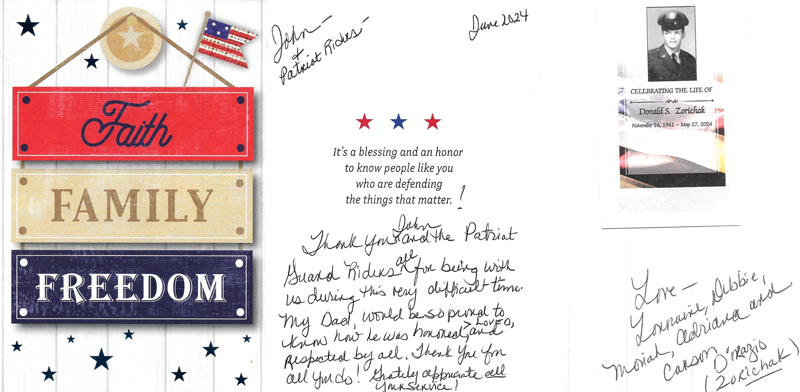 Faith
FAMILY
FREEDOM
John -
&
Patriot Riders -
June 2024
It's a blessing and an honor
to know people like you
who are defending
the things that matter. !
Thank you John and the Patriot
Guard Riders all for being with
us during this very difficult time.
My Dad, would be so proud to
know how he was honored, LOVED, and
respected by all. Thank You for
all you do! Greatly appreciate all
your service!
CELEBRATING THE LIFE OF
Donald S. Zorichak
November 16, 1941 ~ May 27, 2024
Love -
Lorraine, Debbie,
Moriah, Adriana and
Carson D'Orazio
(Zorichak)